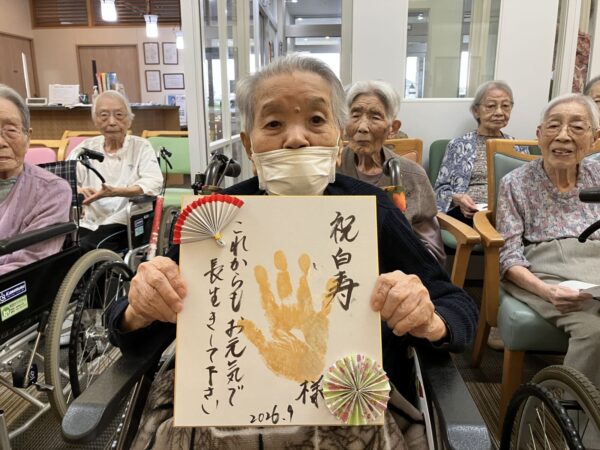 祝白寿
様
これからもお元気で
長生きして下さい
2026.9